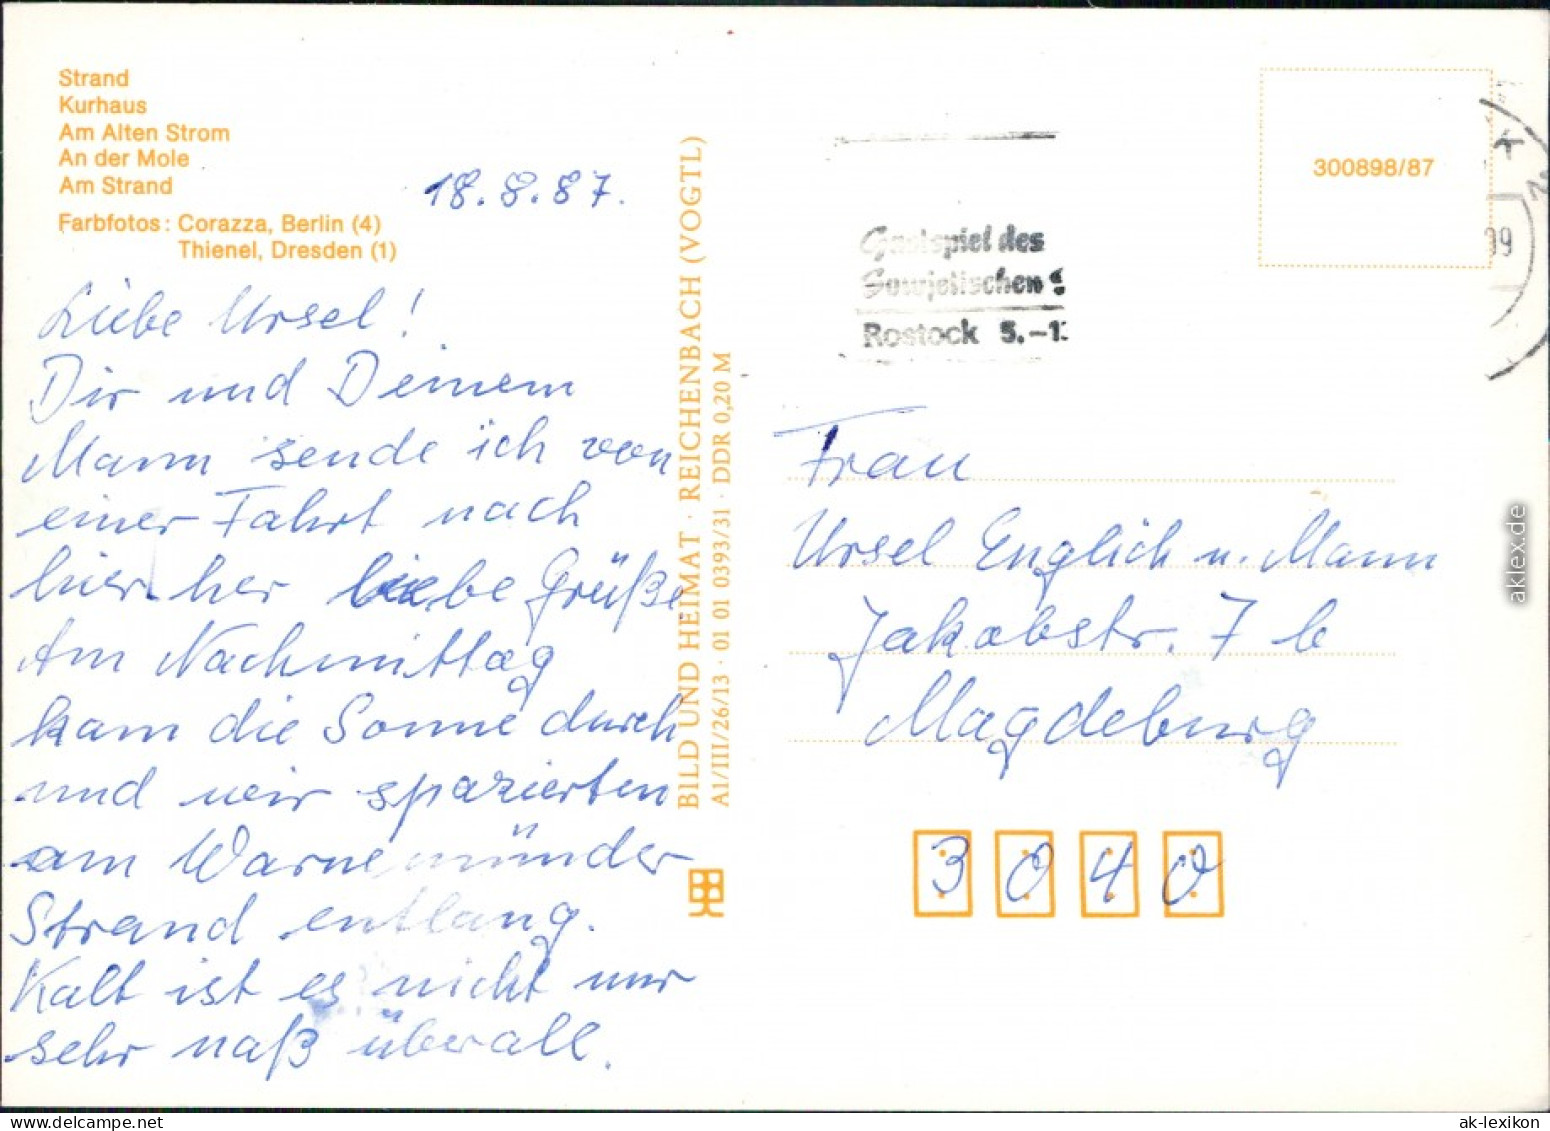 Strand
Kurhaus
Am Alten Strom
An der Mole
Am Strand
Farbfotos: Corazza, Berlin (4)
Thienel, Dresden (1)
18.8.87.
Liebe Ursel!
Dir und Deinem
Mann sende ich von
einer Fahrt nach
hier her liebe Grüße
Am Nachmittag
kam die Sonne durch
und wir spazierten
am Warnemünder
Strand entlang.
Kalt ist es nicht nur
sehr naß überall.
BILD UND HEIMAT · REICHENBACH (VOGTL)
A1/III/26/13 · 01 01 0393/31 · DDR 0,20 M
Gastspiel des
Sowjetischen
Rostock 5.–1
300898/87
Frau
Ursel Englich u. Mann
Jakobstr. 7 b
Magdeburg
3040
aklex.de
ak-lexikon